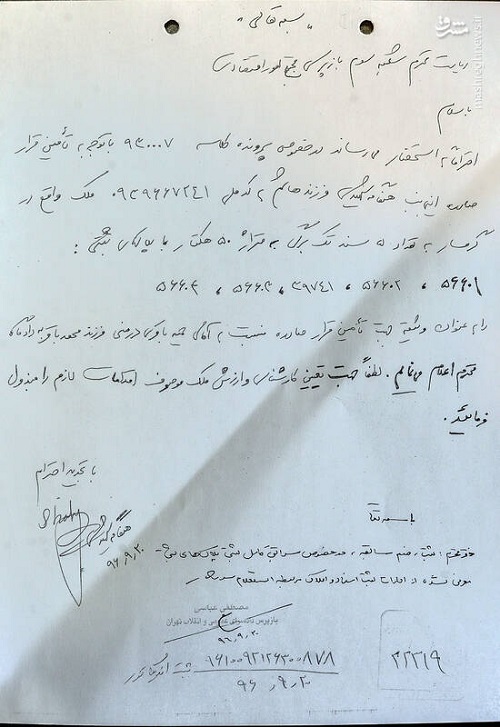 بسمه تعالی
ریاست محترم شعبه سوم بازپرسی مجتمع امور اقتصادی
با سلام
احتراماً به استحضار می رساند در خصوص پرونده کلاسه ۹۳۰۰۰۷ با توجه به تأمین قرار
صادره اینجانب فرزند هاشم به کد ملی ۰۹۳۹۶۶۷۲۴۱ ملک واقع در
گرمسار به تعداد ۵ سند تک برگی به متراژ ۵۰ هکتار با پلاکهای ثبتی :
۵۶۶۰۱ ، ۵۶۶۰۲ ، ۳۹۷۴۱ ، ۵۶۶۰۳ ، ۵۶۶۰۴
را به عنوان وثیقه جهت تأمین قرار صادره نسبت به آقای حمید باقری درمنی فرزند محمدباقر به دادگاه
محترم اعلام می نمایم . لطفاً جهت تعیین کارشناسی و ارزش ملک موصوف اقدامات لازم را مبذول
فرمائید .
با تجدید احترام
۹۶,۹,۲۰
باسمه تعالی
دفتر محترم : ثبت، ضم سابقه ، در خصوص سوابق کامل ثبتی پلاک های ثبتی
از ادارات ثبت اسناد و املاک مربوطه استعلام
مصطفی عباسی
بازپرس دادسرای عمومی و انقلاب تهران
۹۶,۹,۲۰
۹۶۱۰۰۹۲۱۲۶۳۰۰۸۷۸
۹۶,۹,۲۰
۲۲۲۱۹
مشرق
mashreghnews.ir